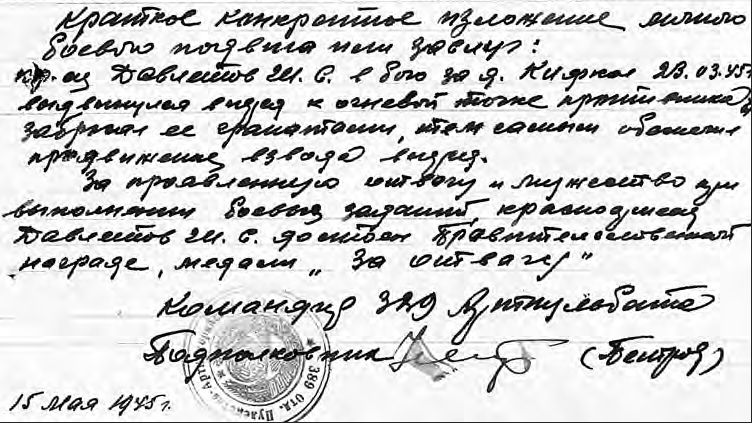 Краткое конкретное изложение личного
боевого подвига или заслуг:
кр-ец Давлетов Ш. С. в бою за д. 23.03.45г
выдвинулся вперед к огневой точке противника и
забросал ее гранатами, тем самым обеспечив
продвижение взвода вперед.
За проявленную отвагу и мужество при
выполнении боевых заданий, красноармеец
Давлетов Ш. С. достоен Правительственной
награде, медали „За отвагу"
Командир 389 Артпульбата
Подполковник (Петров)
389 Отд. Пулеметно-Арт
15 мая 1945г.